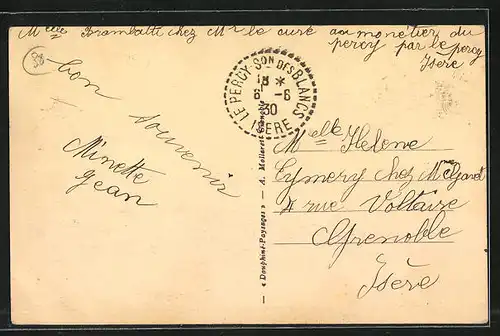 Melle Brambatti chez Mr le curé au monetier du
percy par le percy
Isere
bon souvenir
Minette
Jean
LE PERCY SON DES BLANCS
18 *
6 -6
30
ISERE
« Dauphiné-Paysages » — A. Mollaret Grenoble
Melle Helene
Eymery chez Mr
4 rue Voltaire
Grenoble
Isère